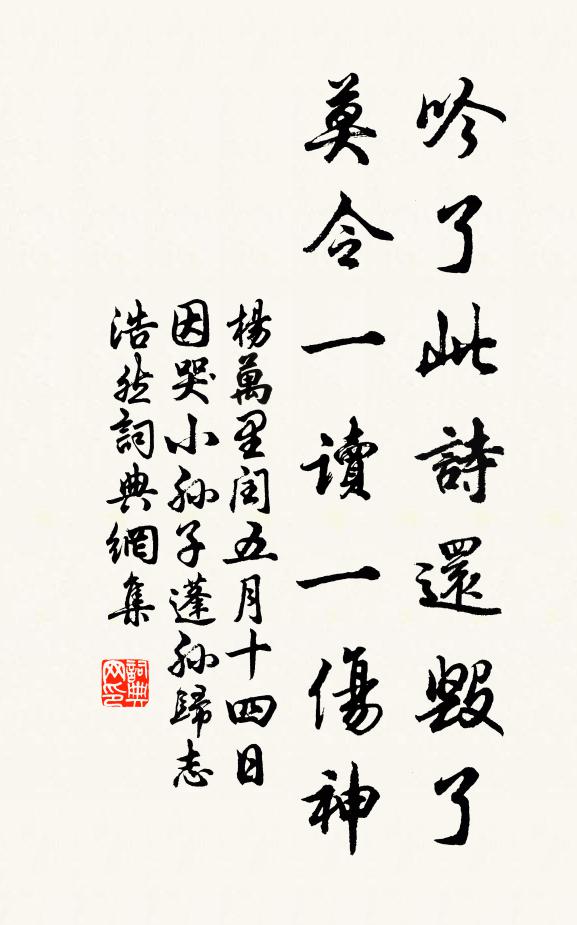 吟了此詩還毀了
莫令一读一傷神
楊萬里閏五月十四日
因哭小孫子蓬孫歸志
浩然詞典網集
詞典网印